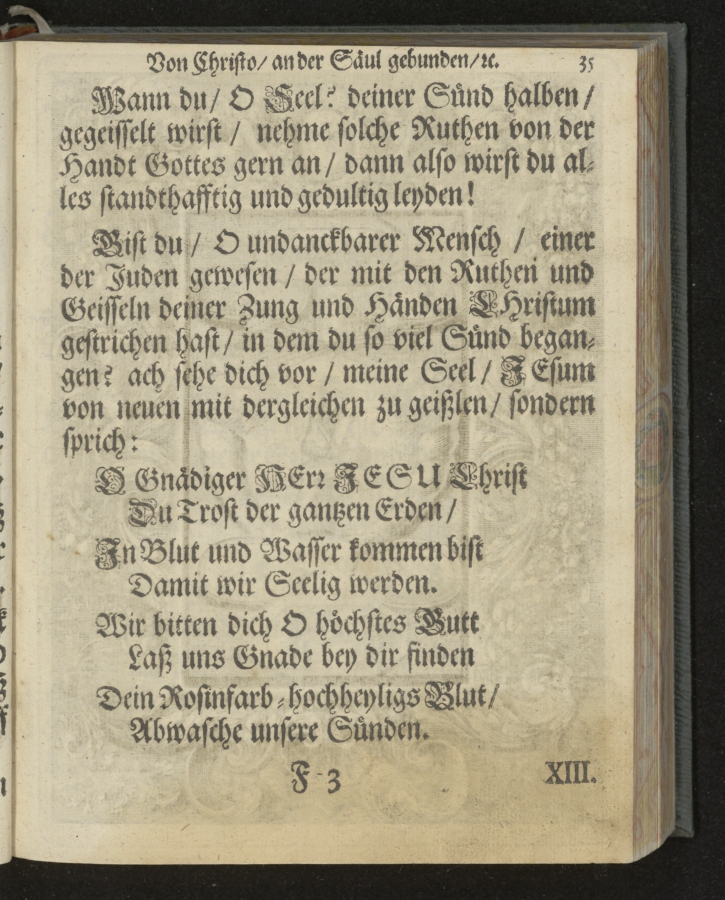 Von Christo/ an der Säul gebunden/ ꝛc. 35
Wann du/ O Seel? deiner Sünd halben/
gegeisselt wirst / nehme solche Ruthen von der
Handt Gottes gern an/ dann also wirst du al-
les standthafftig und gedultig leyden!
Bist du/ O undanckbarer Mensch / einer
der Juden gewesen / der mit den Ruthen und
Geisseln deiner Zung und Händen CHristum
gestrichen hast/ in dem du so viel Sünd began-
gen? ach sehe dich vor / meine Seel/ JEsum
von neuen mit dergleichen zu geißlen/ sondern
sprich:
O Gnädiger HErꝛ JESU Christ
Du Trost der gantzen Erden/
In Blut und Wasser kommen bist
Damit wir Seelig werden.
Wir bitten dich O höchstes Gutt
Laß uns Gnade bey dir finden
Dein Rosinfarb-hochheyligs Blut/
Abwasche unsere Sünden.
F 3 XIII.